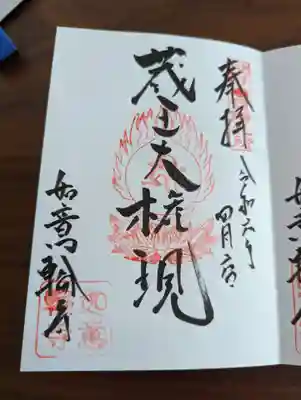 奉拝
令和六年
四月六日
蔵王大権現
如意輪寺